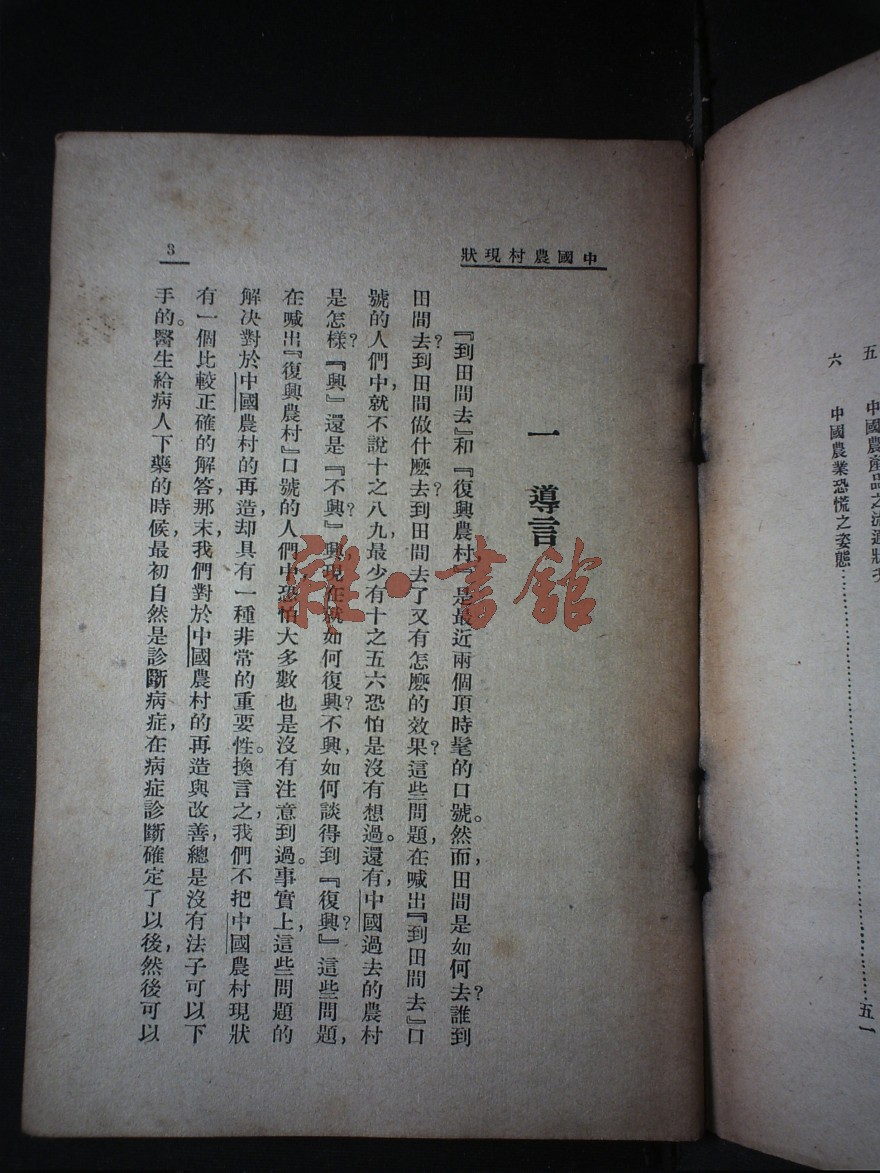 五 中國農產品之流通狀
六 中國農業恐慌之姿態……………………五一
中國農村現狀
3
一 導言
『到田間去』和『復興農村』是最近兩個頂時髦的口號。然而，田間是如何去？誰到
田間去？到田間做什麼去？到田間去了又有怎麼的效果？這些問題，在喊出『到田間去』口
號的人們中，就不說十之八九，最少有十之五六恐怕是沒有想過。還有，中國過去的農村
是怎樣？『興』還是『不興』？興，現在就如何復興？不興，如何談得到『復興』？這些問題，
在喊出『復興農村』口號的人們中，恐怕大多數也是沒有注意到過。事實上，這些問題的
解決對於中國農村的再造，却具有一種非常的重要性。換言之，我們不把中國農村現狀
有一個比較正確的解答，那末，我們對於中國農村的再造與改善，總是沒有法子可以下
手的。醫生給病人下藥的時候，最初自然是診斷病症，在病症診斷確定了以後，然後可以
雜·書館